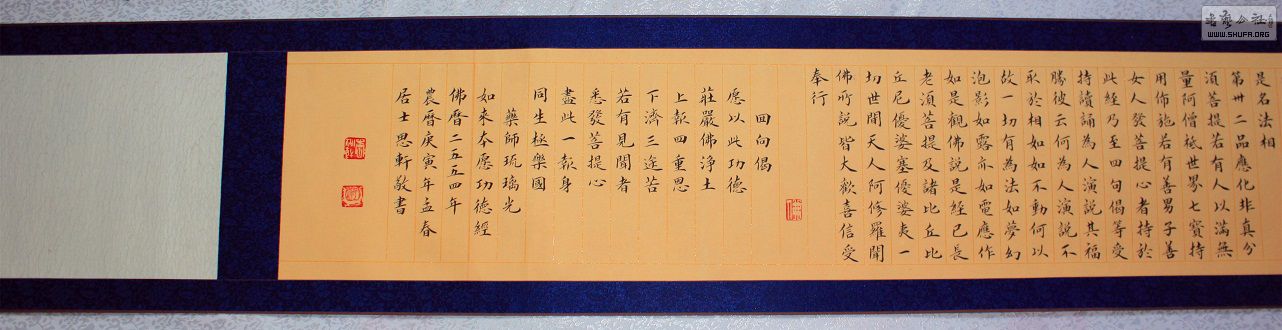 是名法相
第卅二品應化非真分
須菩提若有人以滿無
量阿僧祇世界七寶持
用佈施若有善男子善
女人發菩提心者持於
此經乃至四句偈等受
持讀誦為人演說其福
勝彼云何為人演說不
取於相如如不動何以
故一切有為法如夢幻
泡影如露亦如電應作
如是觀佛說是經已長
老須菩提及諸比丘比
丘尼優婆塞優婆夷一
切世間天人阿修羅聞
佛所說皆大歡喜信受
奉行
回向偈
愿以此功德
莊嚴佛淨土
上報四重恩
下濟三途苦
若有見聞者
悉發菩提心
盡此一報身
同生極樂國
藥師琉璃光
如來本愿功德經
佛曆二五五四年
農曆庚寅年孟春
居士思軒敬書
WWW.SHUFA.ORG